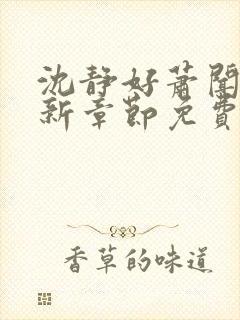 沈静好萧阖
新章节免费
香草的味道